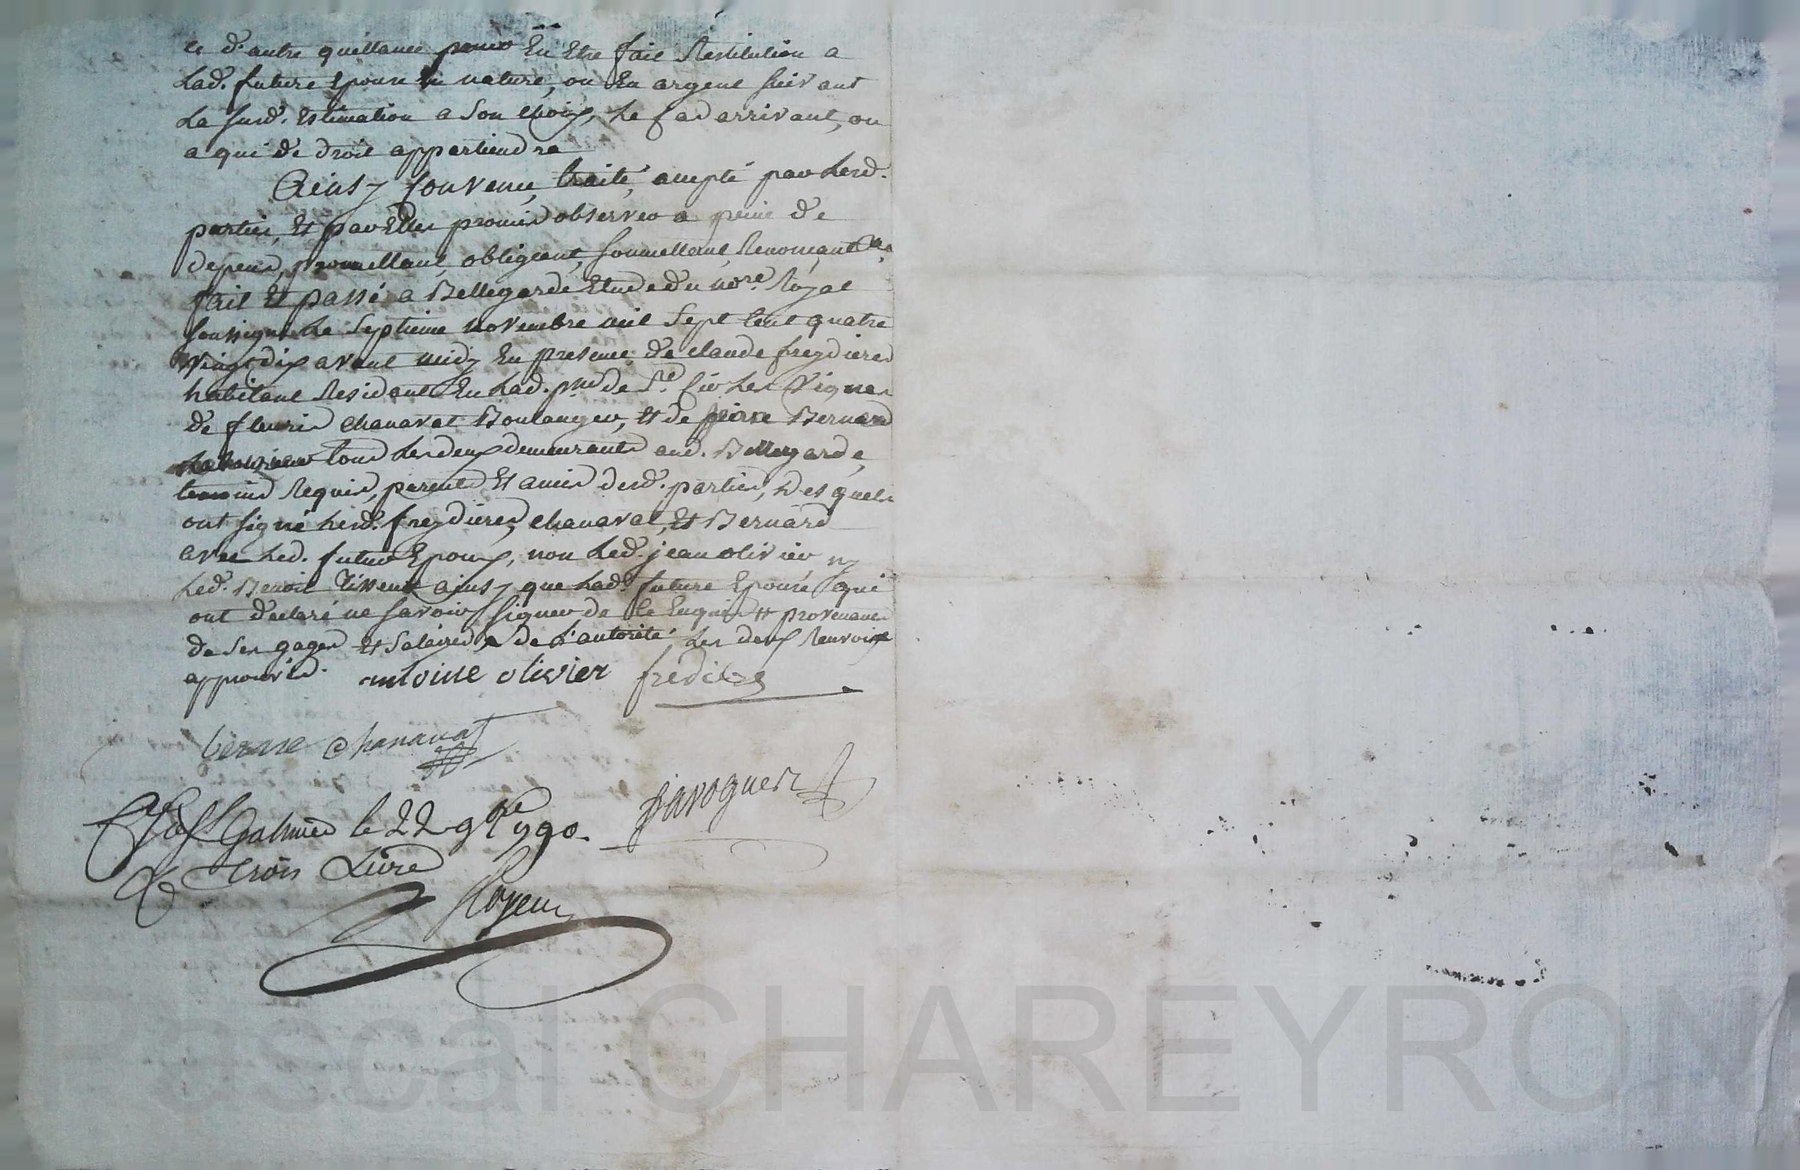 ce d'autre quittance pour En Etre fait Restitution a
Lad. future Epouse En nature, ou En argent suivant
La susd. Estimation a son choix, Le Cas arrivant, ou
a qui de droit appartiendra
Ainsy Convenu, traité, accepté par Lesd.
parties, Et par Elles promis observer a peine de
depens, promettant, obligeant, soumettant, Renonçant &a.
fait Et passé a Bellegarde Etude du nore. Royal
soussigné Le Septieme novembre mil Sept Cent quatre
vingt dix avant midy En presence de claude freydieres
habitant Residant En Lad. de St. Cir Les Vignes
de fleuris chanavat Boulanger, Et de pierre Bernard
tous Les deux demeurants aud. Bellegarde,
temoins Requis, parents Et amis desd. parties, Desquels
ont signé Lesd. freydieres, chanavat, Et Bernard
avec Led. futur Epoux, non Led. jean olivier ny
Led. Benoit Tisseur ainsy que Lad. future Epouse qui
ont declaré ne savoir signer de Ce Enquis # provenants
de Ses gages Et Salaires x de L'autorité Les deux Renvoix
approuvés. antoine olivier
chanavat
javogues
St Galmier le 22 9bre 1790.
trois Livre